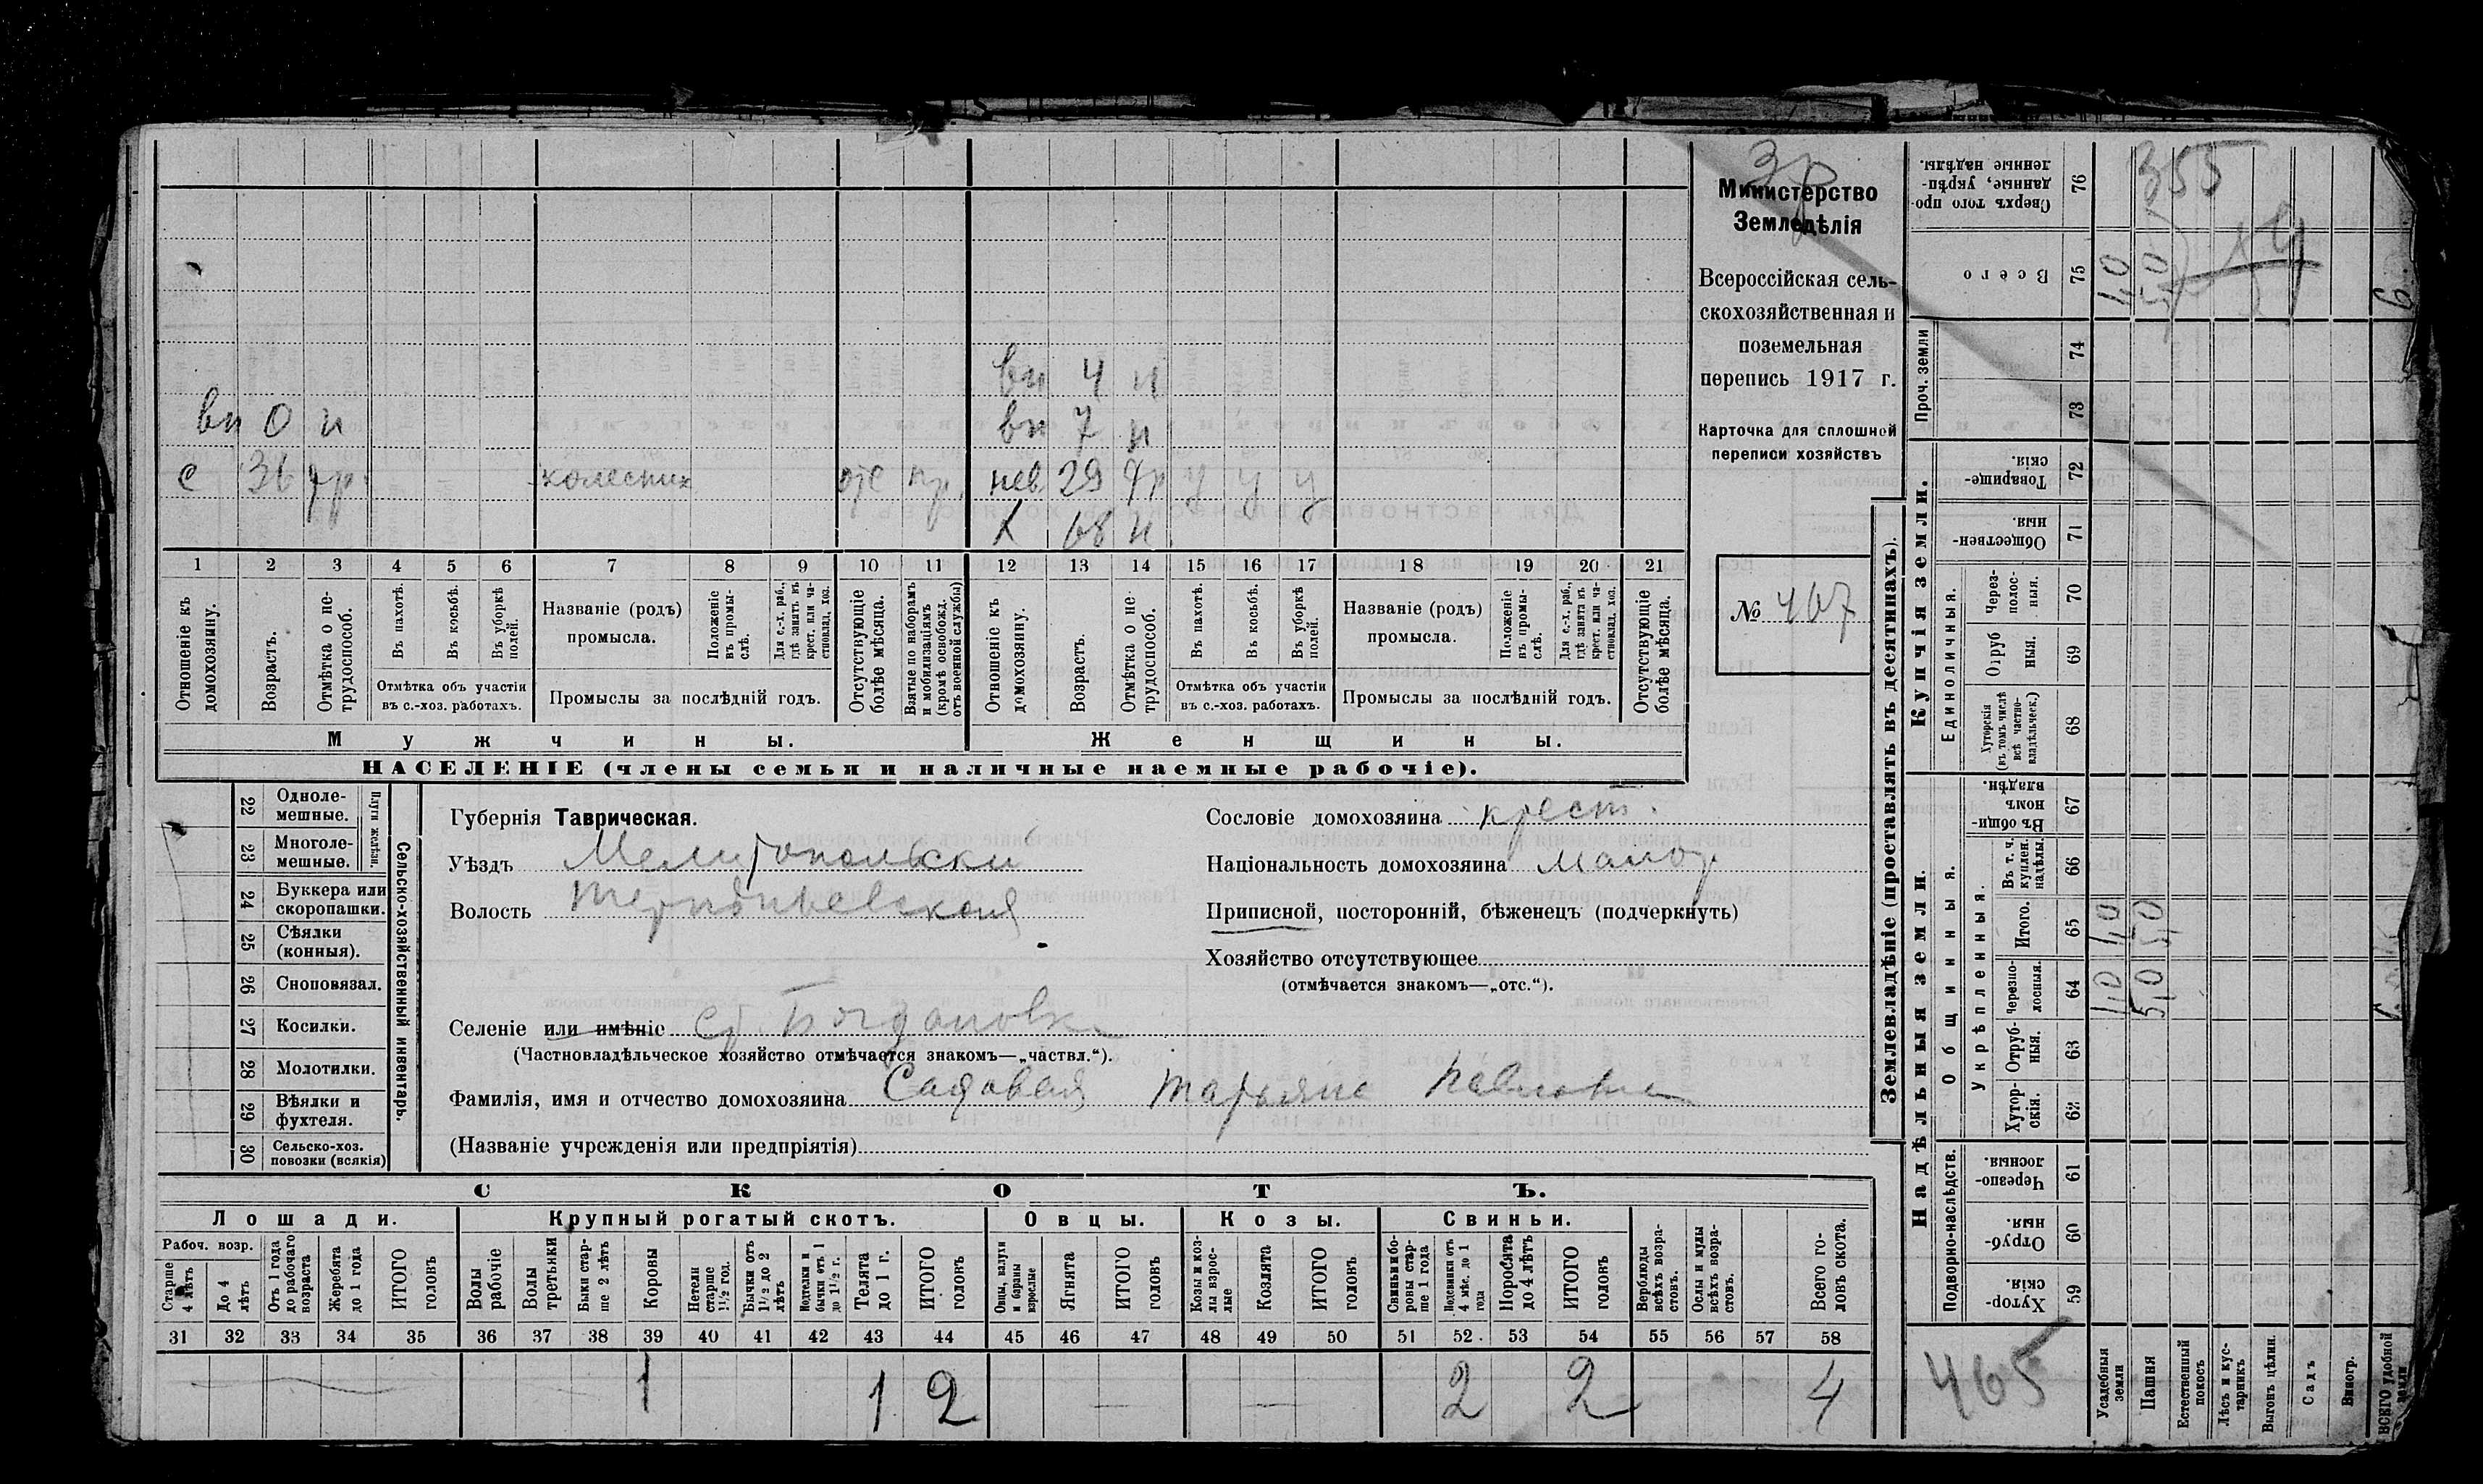 Зр
Министерство
Земледѣлія
Всероссійская сель-
скохозяйственная и
поземельная
перепись 1917 г.
Карточка для сплошной
переписи хозяйствъ
№ 467
вн 4 н
вн 0 н
вн 7 н
с 36 гр. колесник отс пр.
нев. 29 гр у у у
х 68 н.
1 2 3 4 5 6 7 8 9 10 11 12 13 14 15 16 17 18 19 20 21
Отношеніе къ домохозяину.
Возрастъ.
Отмѣтка о не-трудоспособ.
Въ пахотѣ.
Въ косьбѣ.
Въ уборкѣ полей.
Отмѣтка объ участіи
въ с.-хоз. работахъ.
Названіе (родъ)
промысла.
Положеніе въ промы-слѣ.
Для с.-х. раб., гдѣ занятъ въ крест. или ча-стновлад. хоз.
Промыслы за послѣдній годъ.
Отсутствующіе болѣе мѣсяца.
Взятые по наборамъ и мобилизаціямъ (кромѣ освобожд. отъ военной службы)
Отношеніе къ домохозяину.
Возрастъ.
Отмѣтка о не-трудоспособ.
Въ пахотѣ.
Въ косьбѣ.
Въ уборкѣ полей.
Отмѣтка объ участіи
въ с.-хоз. работахъ.
Названіе (родъ)
промысла.
Положеніе въ промы-слѣ.
Для с.-х. раб., гдѣ занята въ крест. или ча-стновлад. хоз.
Промыслы за послѣдній годъ.
Отсутствующіе болѣе мѣсяца.
Мужчины.
Женщины.
НАСЕЛЕНІЕ (члены семьи и наличные наемные рабочіе).
22 Одноле-мешные.
23 Многоле-мешные.
Плуги желѣзн.
24 Буккера или скоропашки.
25 Сѣялки (конныя).
26 Сноповязал.
27 Косилки.
28 Молотилки.
29 Вѣялки и фухтеля.
30 Сельско-хоз. повозки (всякія)
Сельско-хозяйственный инвентарь.
Губернія Таврическая.
Уѣздъ Мелитопольскй
Волость Терпѣньевская
Селеніе или имѣніе Ст. Богдановка
(Частновладѣльческое хозяйство отмѣчается знакомъ—„частвл.“).
Фамилія, имя и отчество домохозяина Садовая Татьяна Павловна
(Названіе учрежденія или предпріятія)
Сословіе домохозяина крест.
Національность домохозяина малор.
Приписной, посторонній, бѣженецъ (подчеркнуть)
Хозяйство отсутствующее
(отмѣчается знакомъ—„отс.“).
СКОТЪ.
Лошади.
Крупный рогатый скотъ.
Овцы.
Козы.
Свиньи.
Рабоч. возр.
Старше 4 лѣтъ
До 4 лѣтъ
Отъ 1 года до рабочаго возраста
Жеребята до 1 года
ИТОГО головъ
Волы рабочіе
Волы третьяки
Быки стар-ше 2 лѣтъ
Коровы
Нетели старше 1½ год.
Бычки отъ 1½ до 2 лѣтъ
Подтелки и бычки отъ 1 до 1½ г.
Телята до 1 г.
ИТОГО головъ
Овцы, валухи и бараны взрослые
Ягнята
ИТОГО головъ
Козы и коз-лы взрос-лые
Козлята
ИТОГО головъ
Свиньи и бо-ровы стар-ше 1 года
Подсвинки отъ 4 мѣс. до 1 года
Поросята до 4 лѣтъ
ИТОГО головъ
Верблюды всѣхъ возра-стовъ.
Ослы и мулы всѣхъ возра-стовъ.
Всего го-ловъ скота.
31 32 33 34 35 36 37 38 39 40 41 42 43 44 45 46 47 48 49 50 51 52 53 54 55 56 57 58
1 1 2 — — 2 2 4
Землевладѣніе (проставлять въ десятинахъ).
Купчія земли.
Надѣльныя земли.
Сверхъ того про-данные, укрѣп-ленные надѣлы. 76
Всего 75
Проч. земли 74
73
Товарище-скія. 72
Обществен-ныя. 71
Единоличныя.
Через-полос-ныя. 70
Отруб ныя. 69
Хуторскія (въ томъ числѣ всѣ частно-владѣльческ.) 68
Въ общин номъ владѣн. 67
Общинныя.
Укрѣпленныя.
Въ т. ч. куплен. надѣлы. 66
Итого. 65
Черезпо-лосныя. 64
Отруб-ныя. 63
Хутор-скія. 62
Подворно-наслѣдств.
Черезпо-лосныя. 61
Отруб-ныя. 60
Хутор-скія. 59
355
1,0
5,0
6.
1,0 1,0
5,0 5,0
465
Усадебныя земли
Пашня
Естественный покосъ
Лѣсъ и кус-тарникъ
Выгонъ цѣлин.
Садъ
Виногр.
ВСЕГО удобной земли